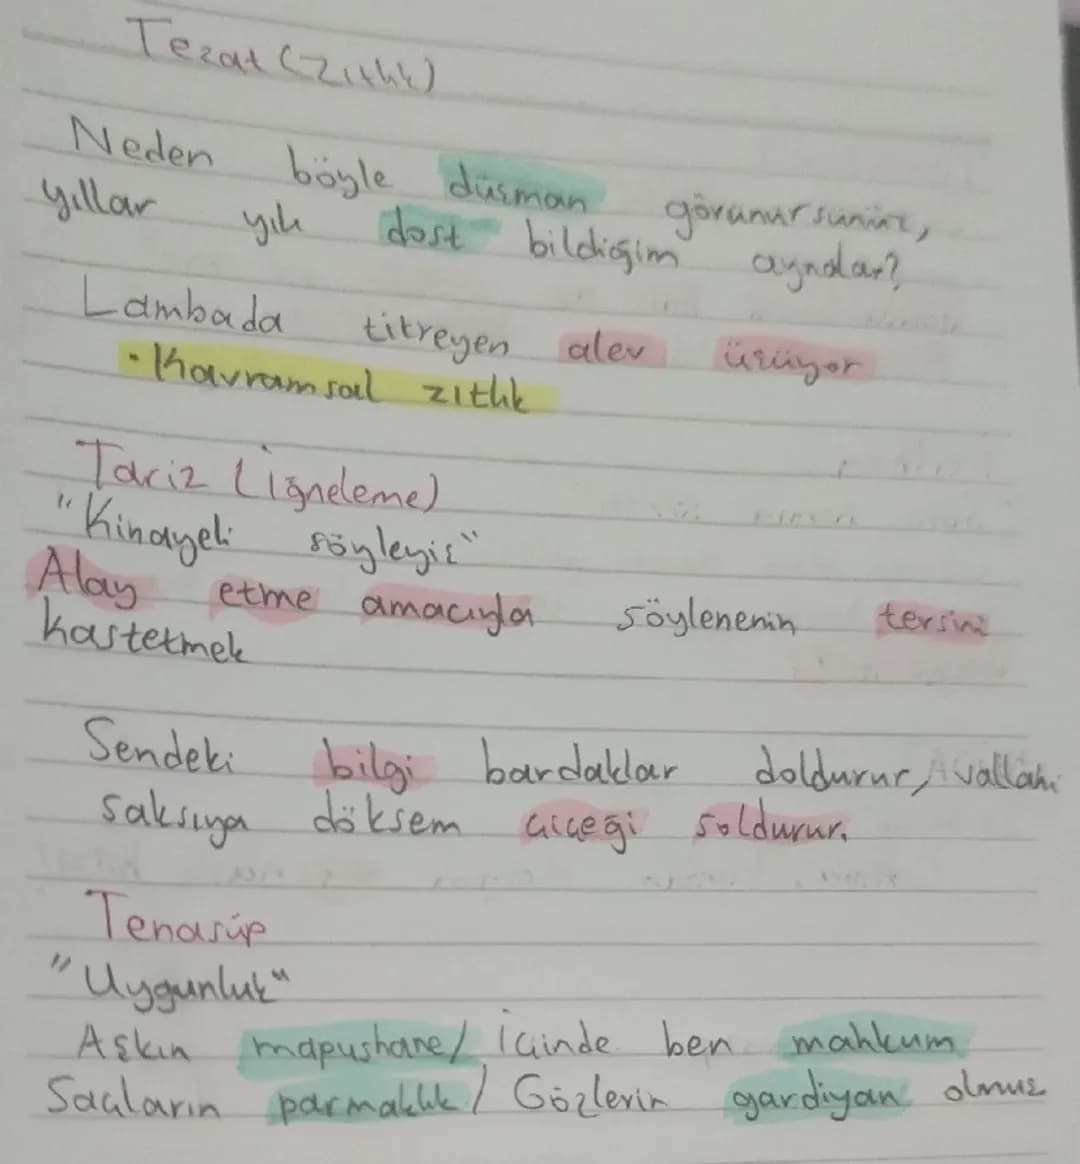 Tezat (Zıtlık)
Neden böyle düşman görünürsünüz,
yıllar yılı dost bildiğim aynalar?
Lambada titreyen alev üşüyor
• Kavramsal zıtlık
Tariz (iğneleme)
"Kinayeli söyleyiş"
Alay etme amacıyla söylenenin tersini
kastetmek
Sendeki bilgi bardaklar doldurur, vallahi
saksıya döksem çiçeği soldurur.
Tenasüp
"Uygunluk"
Aşkın mapushane / İçinde ben mahkum
Saçların parmaklık / Gözlerin gardiyan olmuş